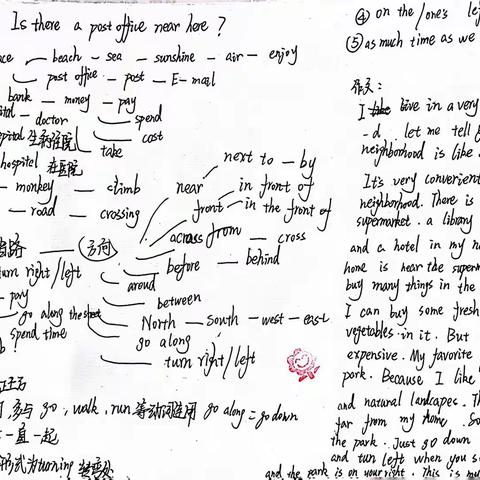 Is there a post office near here ?
beach — sea — sunshine — air — enjoy
post office — post — E-mail
bank — money — pay
doctor
spend
cost
take
hospital
next to — by
near
in front of
monkey — climb
front — in the front of
road — crossing
across from — cross
方向
before — behind
turn right/left
aroud
between
pay
go along the street
North — south — west — east
spend time
go along
turn right/left
多与 go , walk , run 等动词连用 go along = go down
一直 一起
形式为turning
④ on the /one's
⑤ as much time as we
作文 :
I live in a very
-d . let me tell
neighborhood is like .
It's very convenient
neighborhood. There is
supermarket . a library
and a hotel in my
home is near the
buy many things in the
I can buy some fresh
vegetables in it . But
expensive . My favorite
park . Because I like
and natural landcapes .
far from my home .
the park . Just go down
and turn left when you
and the park is on your right . This is